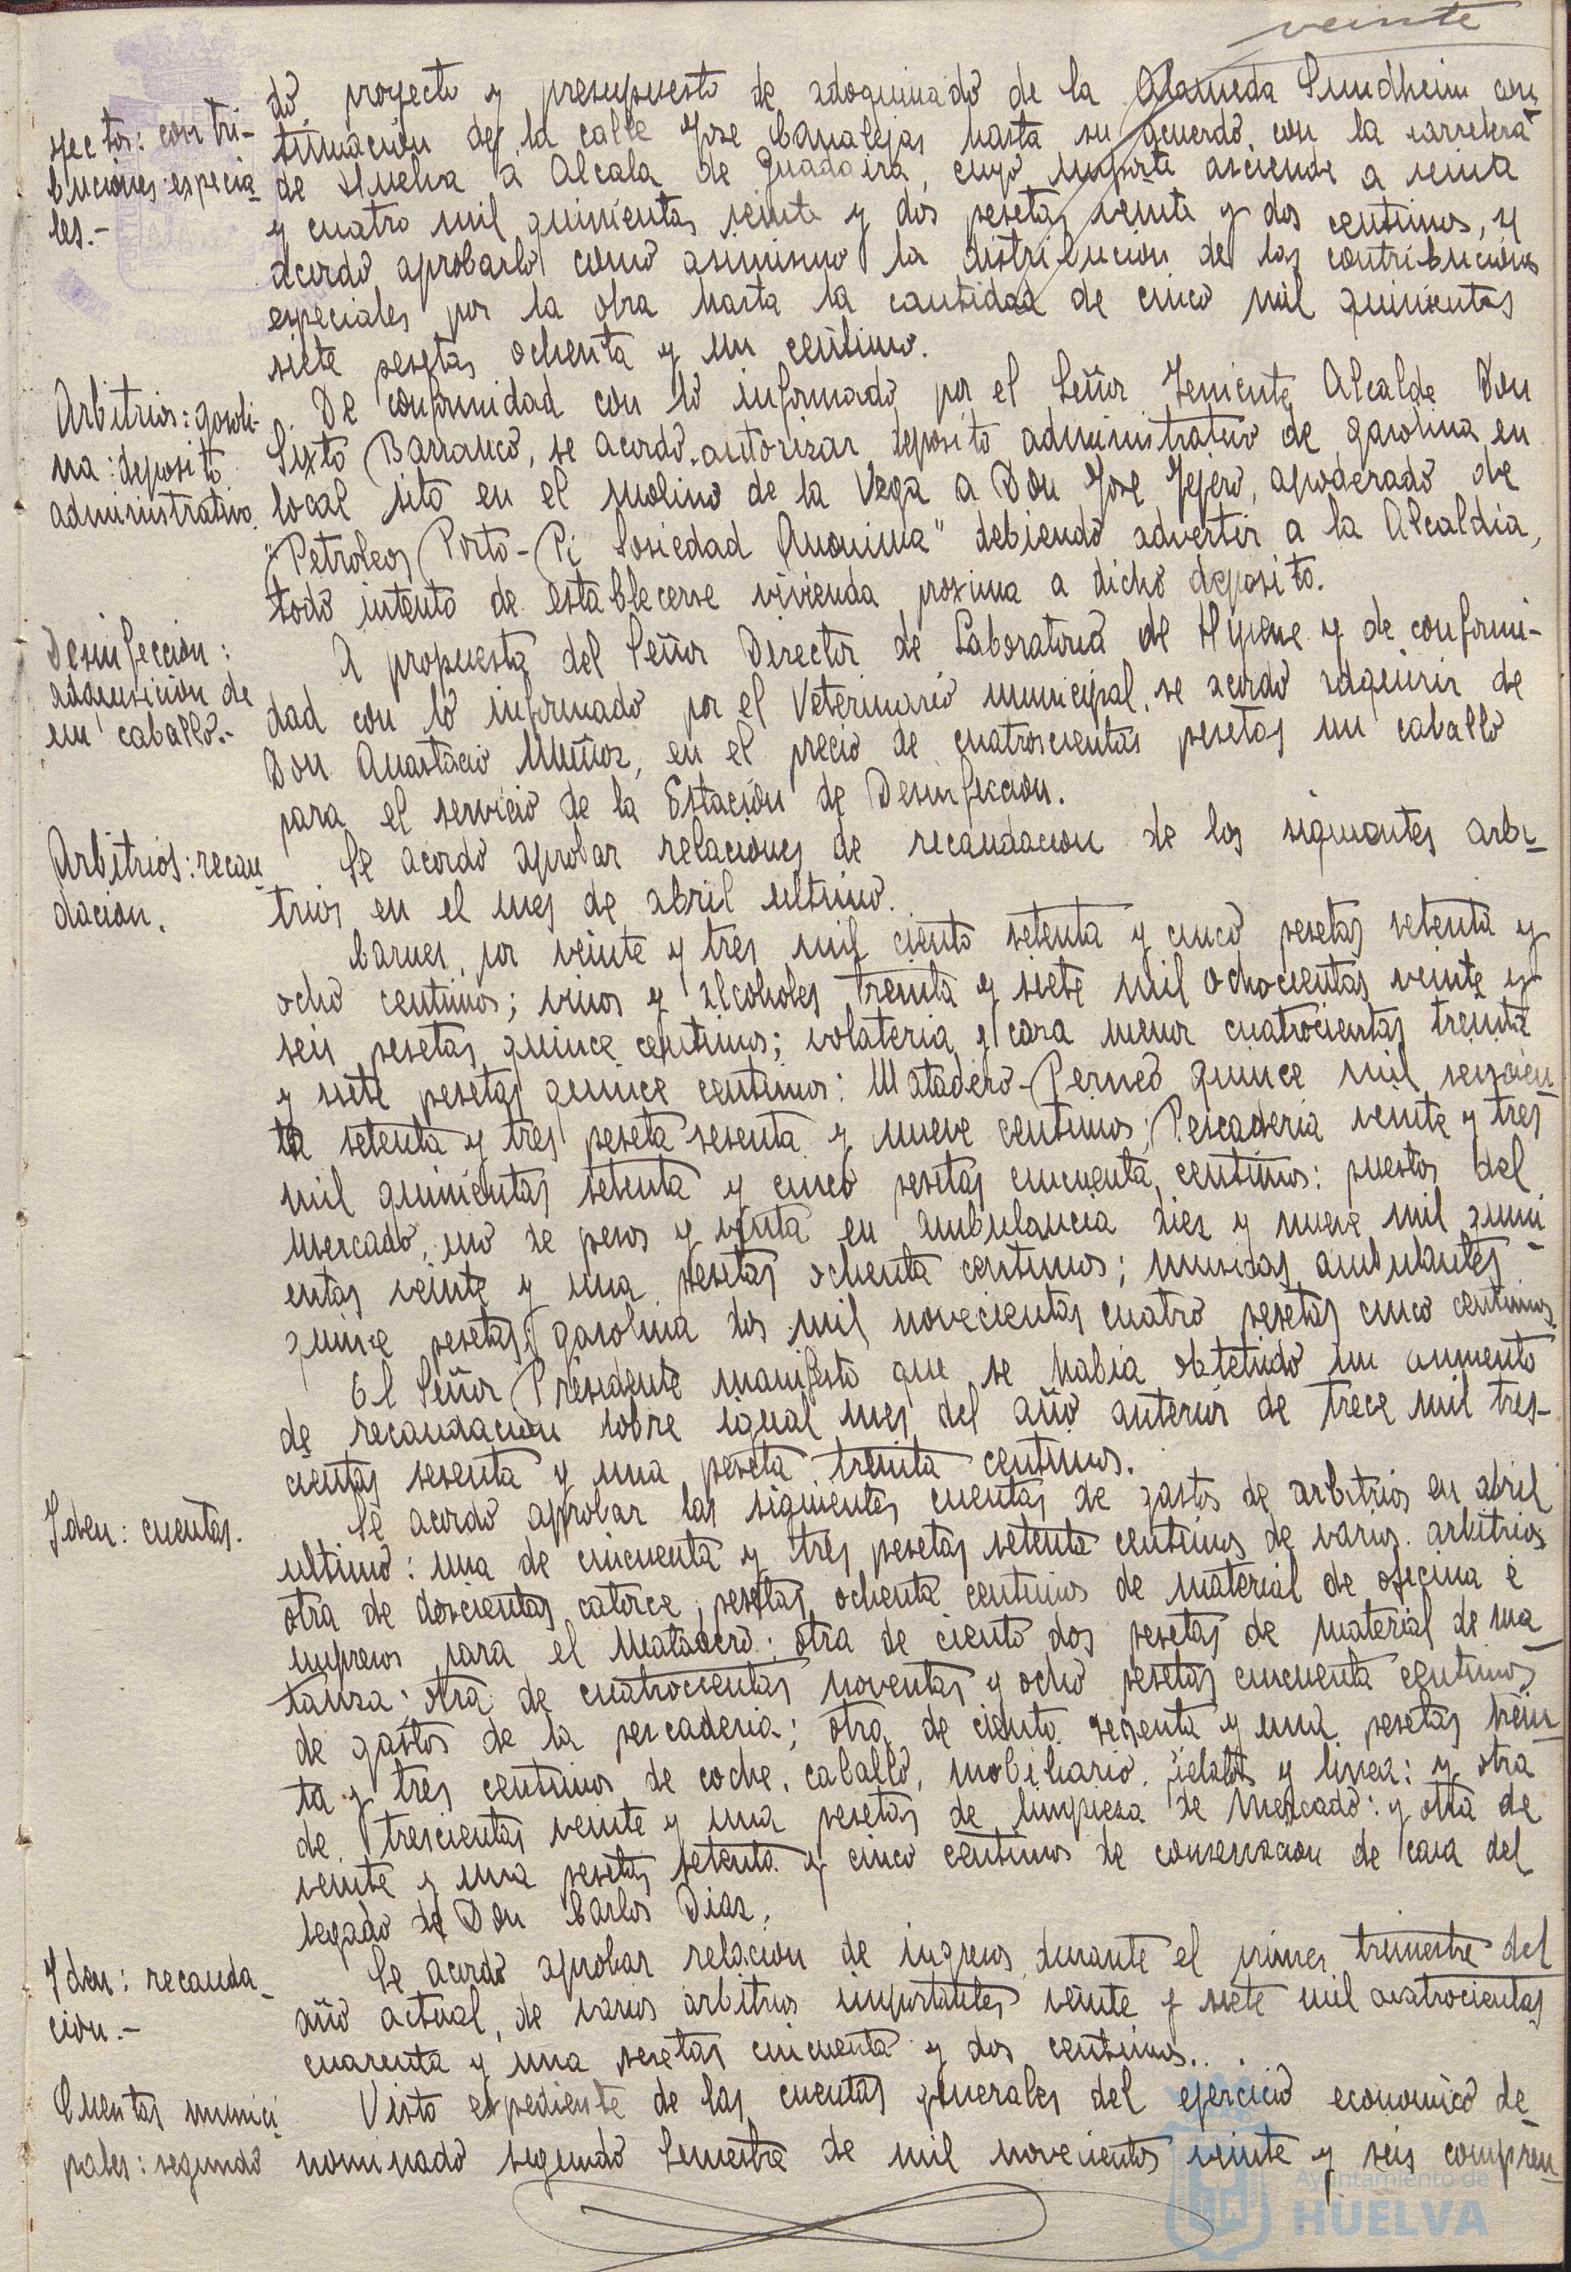 veinte
do proyecto y presupuesto de adoquinado de la Alameda Sundheim con-
yectos: contri-
tinuacion de la calle Jose Canalejas hasta su acuerdo con la carretera
buciones especia-
de Huelva a Alcala de Guadaira, cuyo importe asciende a veinte
les.-
y cuatro mil quinientas veinte y dos pesetas veinte y dos centimos, y
acordo aprobarlo como asimismo la distribucion de las contribuciones
especiales por la obra hasta la cantidad de cinco mil quinientas
siete pesetas ochenta y un centimo.
Arbitrios: gasoli-
na: deposito
administrativo.
De conformidad con lo informado por el Señor Teniente Alcalde Don
Sixto Barranco, se acordo autorizar deposito administrativo de gasolina en
local sito en el molino de la Vega a Don Jose Tejero, apoderado de
"Petroleos Porto-Pi Sosiedad Anonima" debiendo advertir a la Alcaldia,
todo intento de establecerse vivienda proxima a dicho deposito.
Desinfeccion:
adquisicion de
un caballo.-
A propuesta del Señor Director de Laboratorio de Higiene y de conformi-
dad con lo informado por el Veterinario municipal, se acordo adquirir de
Don Anastacio Muñoz, en el precio de cuatroscientas pesetas un caballo
para el servicio de la Estacion de Desinfeccion.
Arbitrios: recau-
dacion.
Se acordo aprobar relaciones de recaudacion de los siguientes arbi-
trios en el mes de abril ultimo.
Carnes, por veinte y tres mil ciento setenta y cinco pesetas setenta y
ocho centimos; vinos y alcoholes treinta y siete mil ochocientas veinte y
seis pesetas quince centimos; volateria y caza menor cuatrocientas treinta
y siete pesetas quince centimos: Matadero-Perneo quince mil seiscien-
ta setenta y tres peseta sesenta y nueve centimos; Pescaderia veinte y tres
mil quinientas setenta y cinco pesetas cincuenta centimos: puestos del
mercado, uso de pesos y venta en ambulancia diez y nueve mil quini-
entas veinte y una pesetas ochenta centimos; musicas ambulantes
quince pesetas; gasolina dos mil novecientas cuatro pesetas cinco centimos.
El Señor Presidente manifesto que se habia obtenido un aumento
de recaudacion sobre igual mes del año anterior de trece mil tres-
cientas sesenta y una peseta treinta centimos.
Iden: cuentas.
Se acordo aprobar las siguientes cuentas de gastos de arbitrios en abril
ultimo: una de cincuenta y tres pesetas setenta centimos de varios arbitrios
otra de doscientas catorce pesetas ochenta centimos de material de oficina e
impresos para el Matadero: otra de ciento dos pesetas de material de ma-
tanza; otra de cuatrocientas noventas y ocho pesetas cincuenta centimos
de gastos de la pescaderia; otra de ciento sesenta y una pesetas trein-
ta y tres centimos de coche, caballo, mobiliario, y linea: y otra
de trescientas veinte y una pesetas de limpieza de Mercado: y otra de
veinte y una pesetas setenta y cinco centimos de conservacion de casa del
legado de Don Carlos Diaz.
Iden: recauda-
cion.-
Se acordo aprobar relacion de ingresos durante el primer trimestre del
año actual, de varios arbitrios importantes veinte y siete mil cuatrocientas
cuarenta y una pesetas cincuenta y dos centimos.
Cuentas munici-
pales: segundo
Visto expediente de las cuentas generales del ejercicio economico de-
nominado segundo Semestre de mil novecientos veinte y seis compren-
Ayuntamiento de
HUELVA